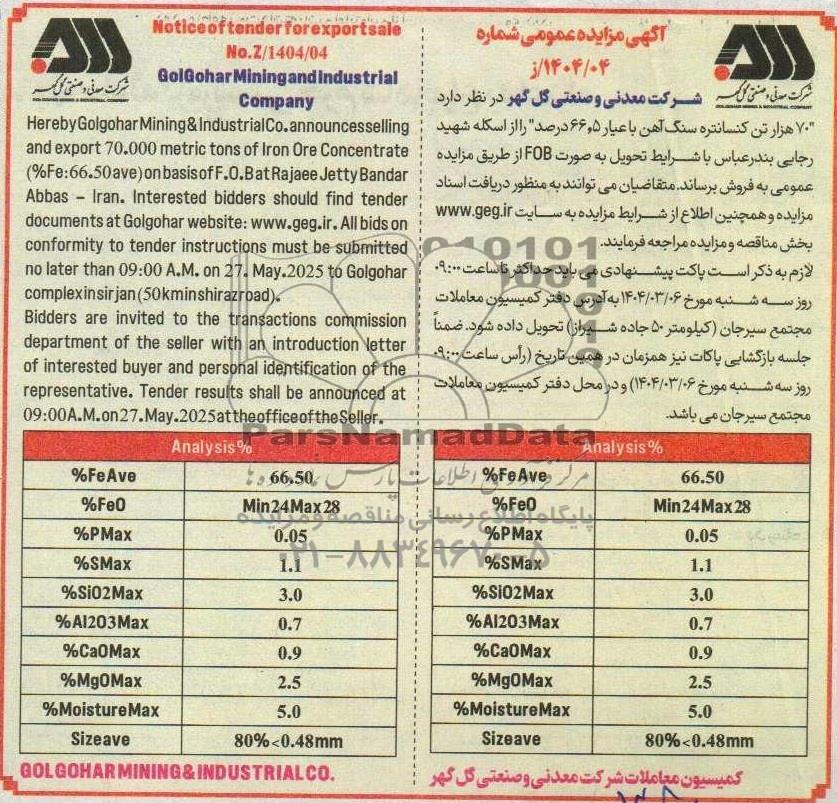 Notice of tender for export sale
No.Z/1404/04
GolGohar Mining and Industrial
Company
شرکت معدنی و صنعتی گل گهر
GOL GOHAR MINING & INDUSTRIAL COMPANY
Hereby Golgohar Mining & Industrial Co. announces selling
and export 70.000 metric tons of Iron Ore Concentrate
(%Fe:66.50 ave) on basis of F.O.B at Rajaee Jetty Bandar
Abbas – Iran. Interested bidders should find tender
documents at Golgohar website: www.geg.ir. All bids on
conformity to tender instructions must be submitted
no later than 09:00 A.M. on 27. May.2025 to Golgohar
complex in sirjan (50 km in shiraz road).
Bidders are invited to the transactions commission
department of the seller with an introduction letter
of interested buyer and personal identification of the
representative. Tender results shall be announced at
09:00 A.M. on 27. May. 2025 at the office of the Seller.
Analysis%
%FeAve 66.50
%FeO Min24Max28
%PMax 0.05
%SMax 1.1
%SiO2Max 3.0
%Al2O3Max 0.7
%CaOMax 0.9
%MgOMax 2.5
%MoistureMax 5.0
Sizeave 80%<0.48mm
GOLGOHAR MINING & INDUSTRIAL CO.
آگهی مزایده عمومی شماره
۱۴۰۴/۰۴/ز
شرکت معدنی و صنعتی گل گهر
GOL GOHAR MINING & INDUSTRIAL COMPANY
شرکت معدنی و صنعتی گل گهر در نظر دارد
"۷۰ هزار تن کنسانتره سنگ آهن با عیار ۶۶٫۵ درصد" را از اسکله شهید
رجایی بندرعباس با شرایط تحویل به صورت FOB از طریق مزایده
عمومی به فروش برساند. متقاضیان می توانند به منظور دریافت اسناد
مزایده و همچنین اطلاع از شرایط مزایده به سایت www.geg.ir
بخش مناقصه و مزایده مراجعه فرمایند.
لازم به ذکر است پاکت پیشنهادی می باید حداکثر تا ساعت ۰۹:۰۰
روز سه شنبه مورخ ۱۴۰۴/۰۳/۰۶ به آدرس دفتر کمیسیون معاملات
مجتمع سیرجان (کیلومتر ۵۰ جاده شیراز) تحویل داده شود. ضمناً
جلسه بازگشایی پاکات نیز همزمان در همین تاریخ (رأس ساعت ۰۹:۰۰
روز سه شنبه مورخ ۱۴۰۴/۰۳/۰۶) و در محل دفتر کمیسیون معاملات
مجتمع سیرجان می باشد.
Analysis%
%FeAve 66.50
%FeO Min24Max28
%PMax 0.05
%SMax 1.1
%SiO2Max 3.0
%Al2O3Max 0.7
%CaOMax 0.9
%MgOMax 2.5
%MoistureMax 5.0
Sizeave 80%<0.48mm
کمیسیون معاملات شرکت معدنی و صنعتی گل گهر
ParsNamadData
پایگاه اطلاع رسانی مناقصه و مزایده
۰۲۱-۸۸۳۴۹۶۷۰-۵